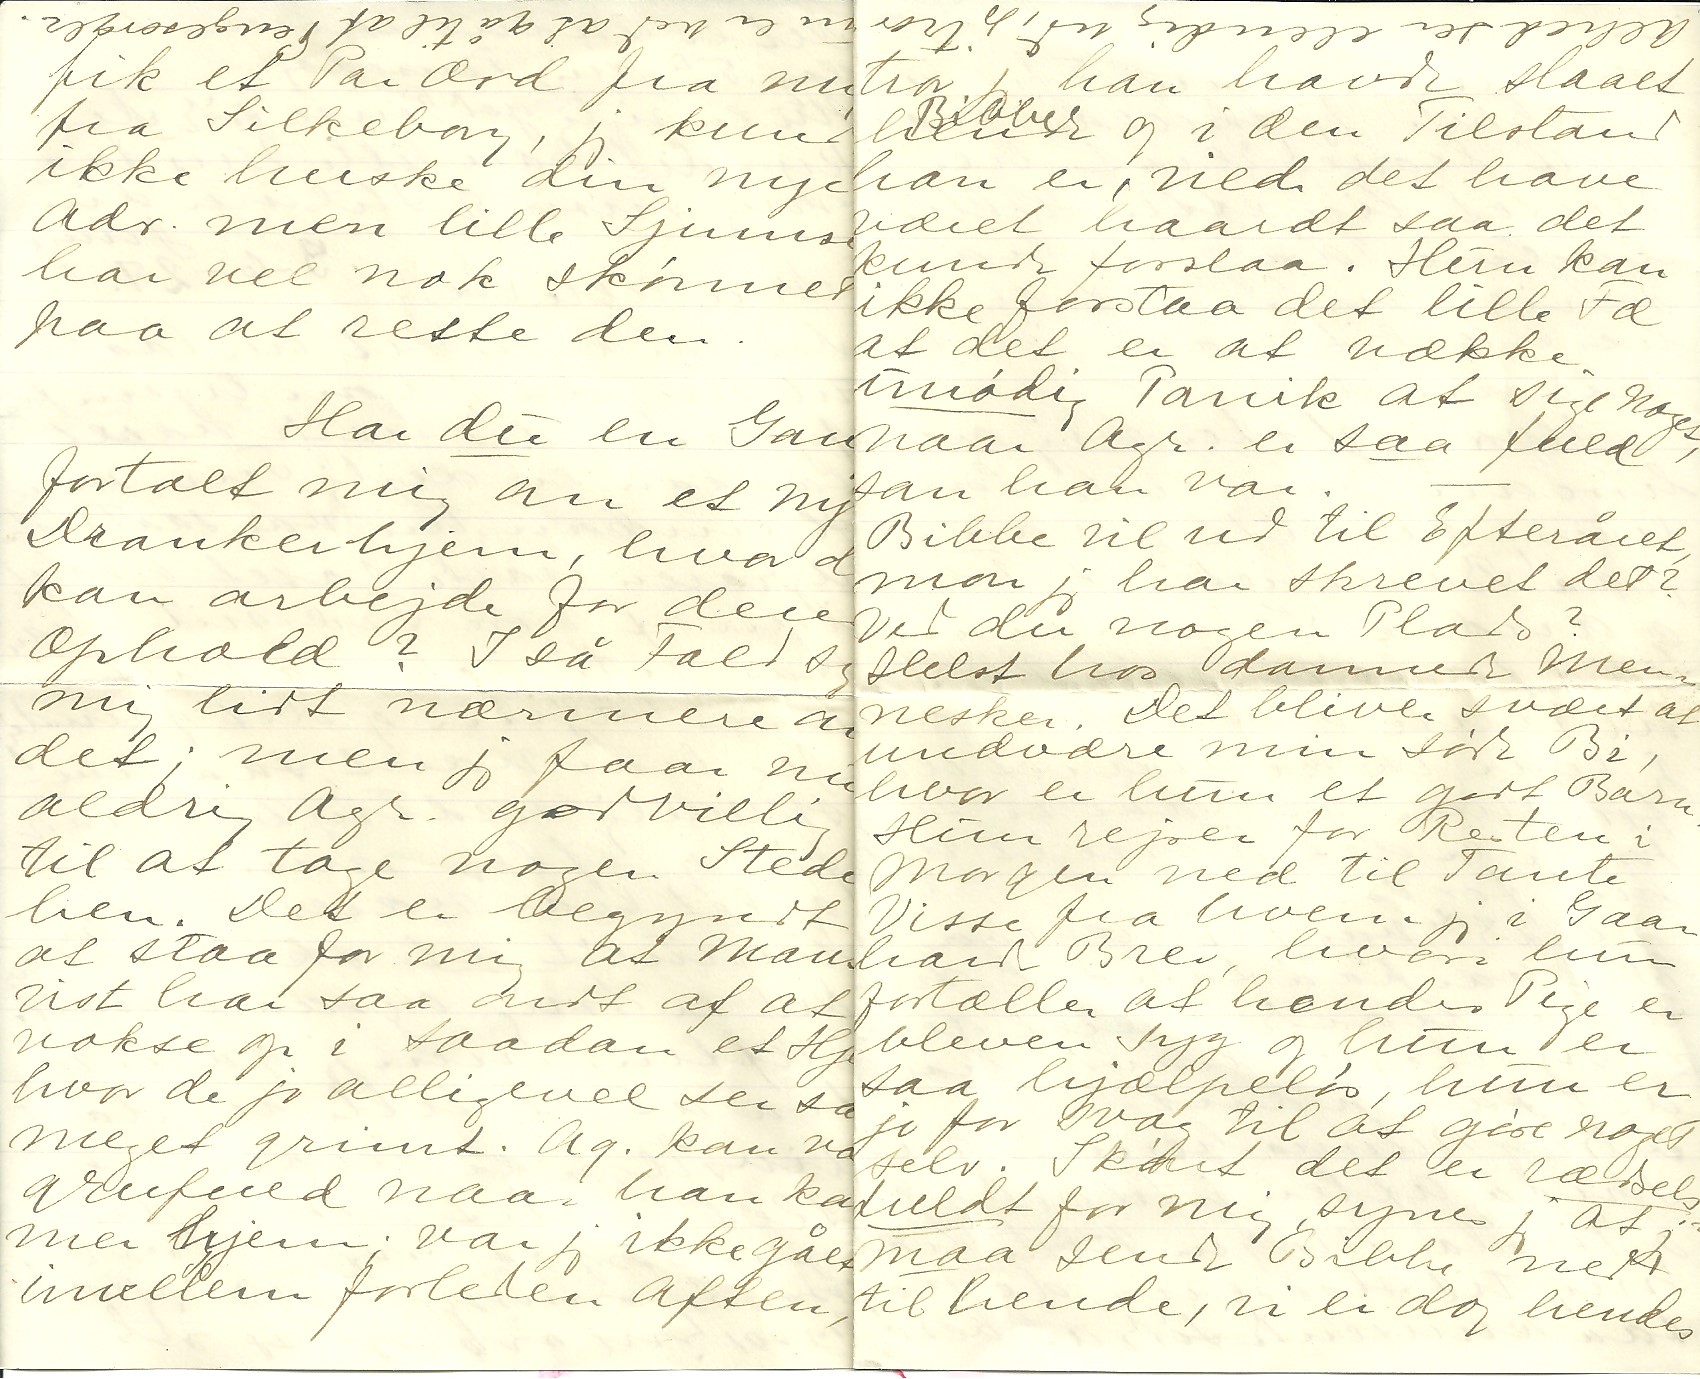 fik et Par Ord fra
fra Silkeborg, j kund
ikke huske din nye
Adr. men lille Sjums
har vel nok skønnet
paa at reste den.
Har du en Gan
fortalt mig om et ny
Drankerhjem, hvor d
kan arbejde for dere
Ophold? I så Fald s
mig lidt nærmere
det; men j faar nu
aldrig Agr. godvillig
til at tage nogen Stede
hen. Det er begyndt
at staa for mig at Man
vist har saa ondt af at
vokse op i saadan et Hje
hvor de jo alligevel ser sa
meget grimt. Ag. kan væ
grufuld naar han ka
mer hjem; var j ikke gået
imellem forleden Aften,
Alhed ser elendig ud, j tror
un er ved at gå til af Pengesorger.
tror j han havde slaaet
Bibbe
hende og i den Tilstand
han er, vilde det have
været haardt saa det
kunde forslaa. Hun kan
ikke forstaa det lille Fæ
at det er at vække
unødig Panik at sige noget,
naar Agr. er saa fuld
som han var.
Bibbe vil ud til Efteråret,
mon j har skrevet det?
Ved du nogen Plads?
Helst hos dannede Men-
nesker. Det bliver svært at
undvære min søde Bi,
hvor er hun et godt Barn.
Hun rejser for Resten i
Morgen ned til Tante
Visse fra hvem j i Gaar
havde Brev, hvori hun
fortæller at hendes Pige er
bleven syg og hun er
saa hjælpeløs, hun er
jo for svag til at gøre noget
selv. Skønt det er rædsels-
fuldt for mig, synes j at j
maa sende Bibbe ned
til hende, vi er dog hendes